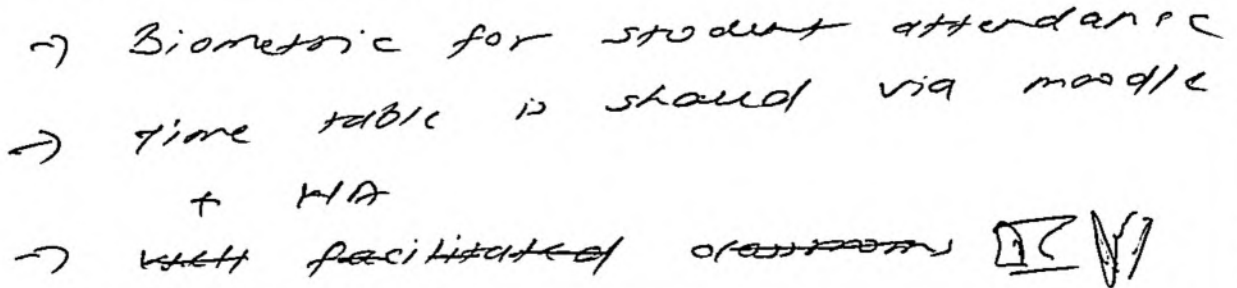 → Biometric for student attendance
→ Time table is shared via moodle
+ WA
→ well facilitated classrooms